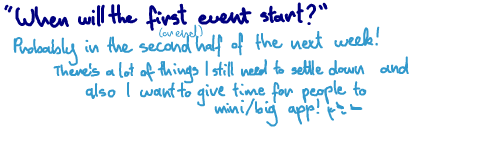 "When will the first event start?"
Probably in the second half of the next week!
There's a lot of things I still need to settle down and
also I want to give time for people to
mini/big app!